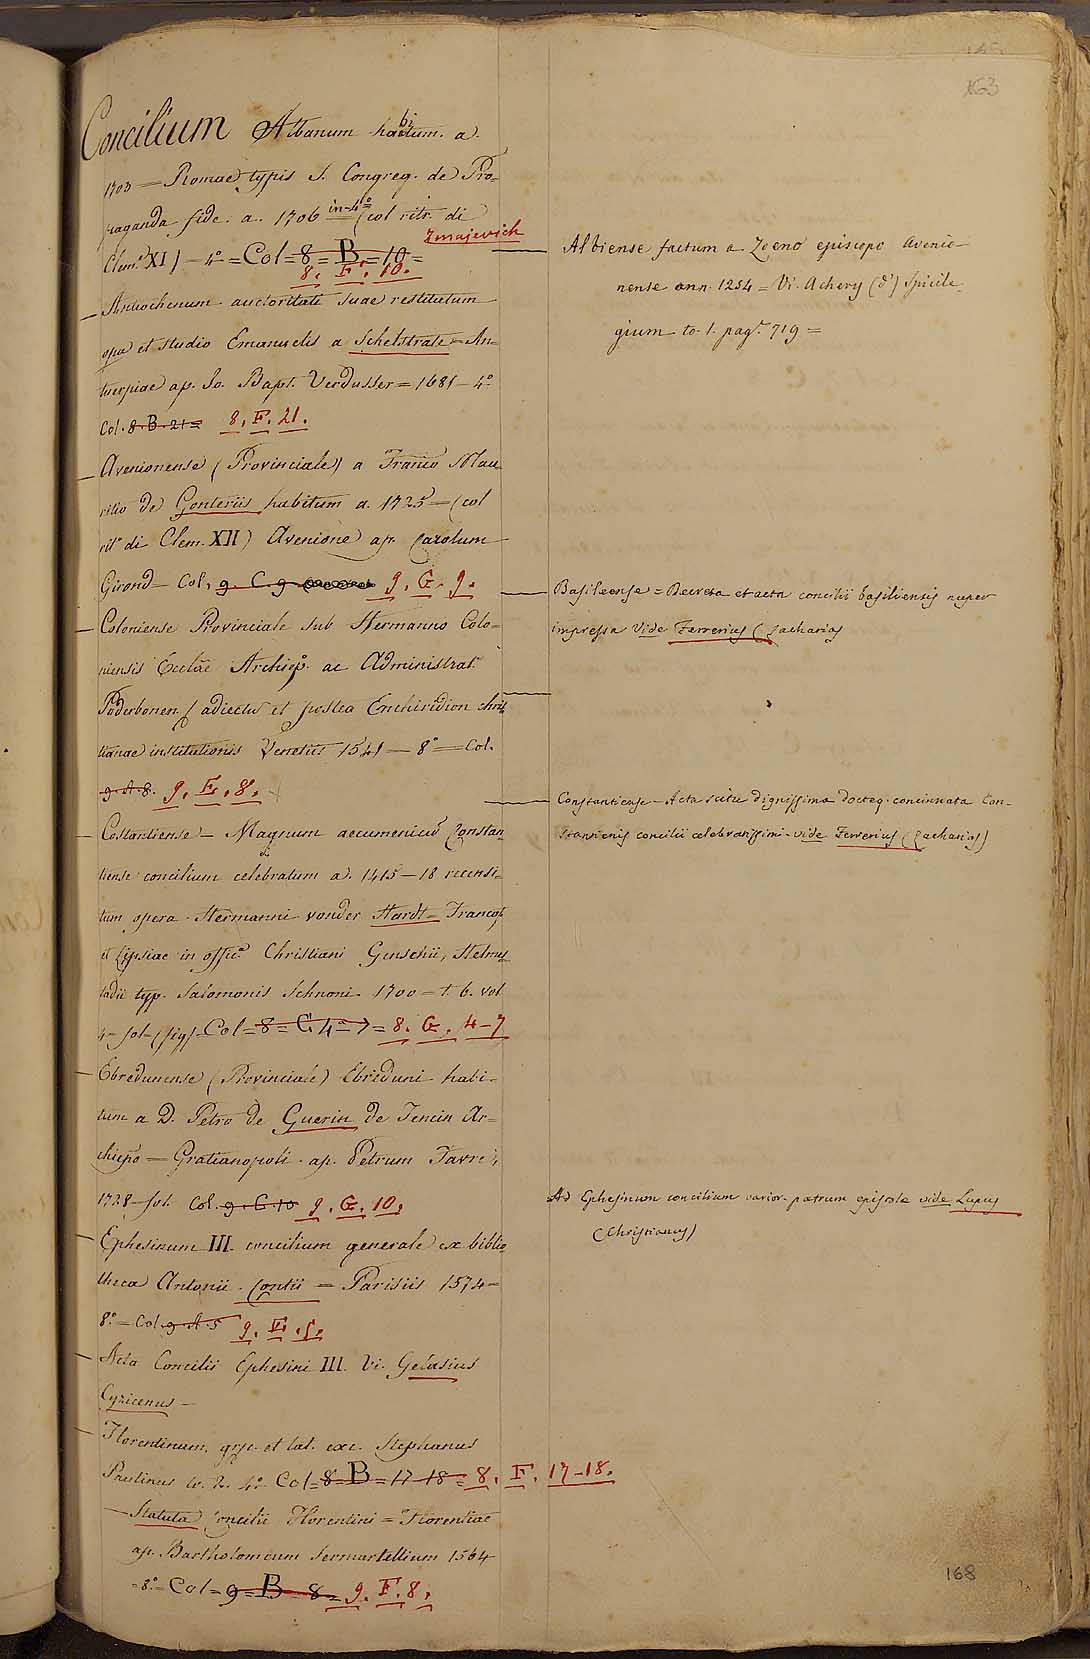 163
Concilium Albanum habitum. a.
1703 = Romae typis S. Congreg. de Pro=
paganda fide. a. 1706 in-4.° (col ritr. di
Zmajevich
Clem.e XI) - 4.° = Col = 8 = B = 10 =
8. F. 10.
Antiochenum auctoritati suae restitutum
opa et studio Emanuelis a Schelstrate = An=
tuerpiae ap. Jo. Bapt. Verdusser = 1681 - 4.°
Col. 8. B. 21 = 8. F. 21.
Avenionense (Provinciale) a Franco Mau
ritio de Gonteriis habitum a. 1725 = (col
rit.° di Clem. XII) Avenione ap. Carolum
Giroud - Col. 9. C. 9 9. G. 9.
Coloniense Provinciale sub Hermanno Colo=
niensis Eccłae Archiep.° ac Administrat.
Paderbonen. adiectu et postea Enchiridion chris
tianae institutionis Venetiis 1541 - 8.° = Col.
9. A. 8. 9. E. 8.
Costantiense - Magnum aecumenicũ Constan
tiense concilium celebratum a. 1415 - 18 recensi=
tum opera Hermanni vonder Hardt = Francof.
et Lipsiae in offic.a Christiani Genschii, Helms
tadii typ. Salomonis Schnorii 1700 = t. 6. vol
4 - fol - (fig) - Col = 8 = C. 4 = 7 = 8. G. 4-7
Ebredunense (Provinciale) Ebreduni habi=
tum a D. Petro de Guerin de Tencin Ar=
chiepo = Gratianopoli ap. Petrum Favre,
1728 - fol. Col. 9 - C. 10 9. G. 10.
Ephesinum III. concilium generale ex biblio
theca Antonii Contii = Parisiis 1574 =
8.° = Col. 9. A. 5 9. E. 5.
Acta Concilii Ephesini III. Vi. Gelasius
Cyzicenus -
Florentinum, gręc. et lat. exc. Stephanus
Paulinus to. 2. 4.° Col = 8 = B = 17-18 = 8. F. 17-18.
Statuta Concilii Florentini = Florentiae
ap. Bartholomeum Sermartellium 1564
= 8.° = Col = 9 = B - 8 = 9. F. 8.
Albiense factum a Zoeno episcopo Avenio-
nense ann. 1254 = Vi. Achery (d') Spicile-
gium to. 1. pag.e 719 =
Basileense = Decreta et acta concilii basiliensis nuper
impressa Vide Ferrerius (Zacharias
Constantiense - Acta scitu dignissima docteq. concinnata Con-
stantienis concilii celebratissimi - vide Ferrerius (Zacharias)
Ad Ephesinum concilium varior. patrum epistolae vide Lupus
(Christianus)
168